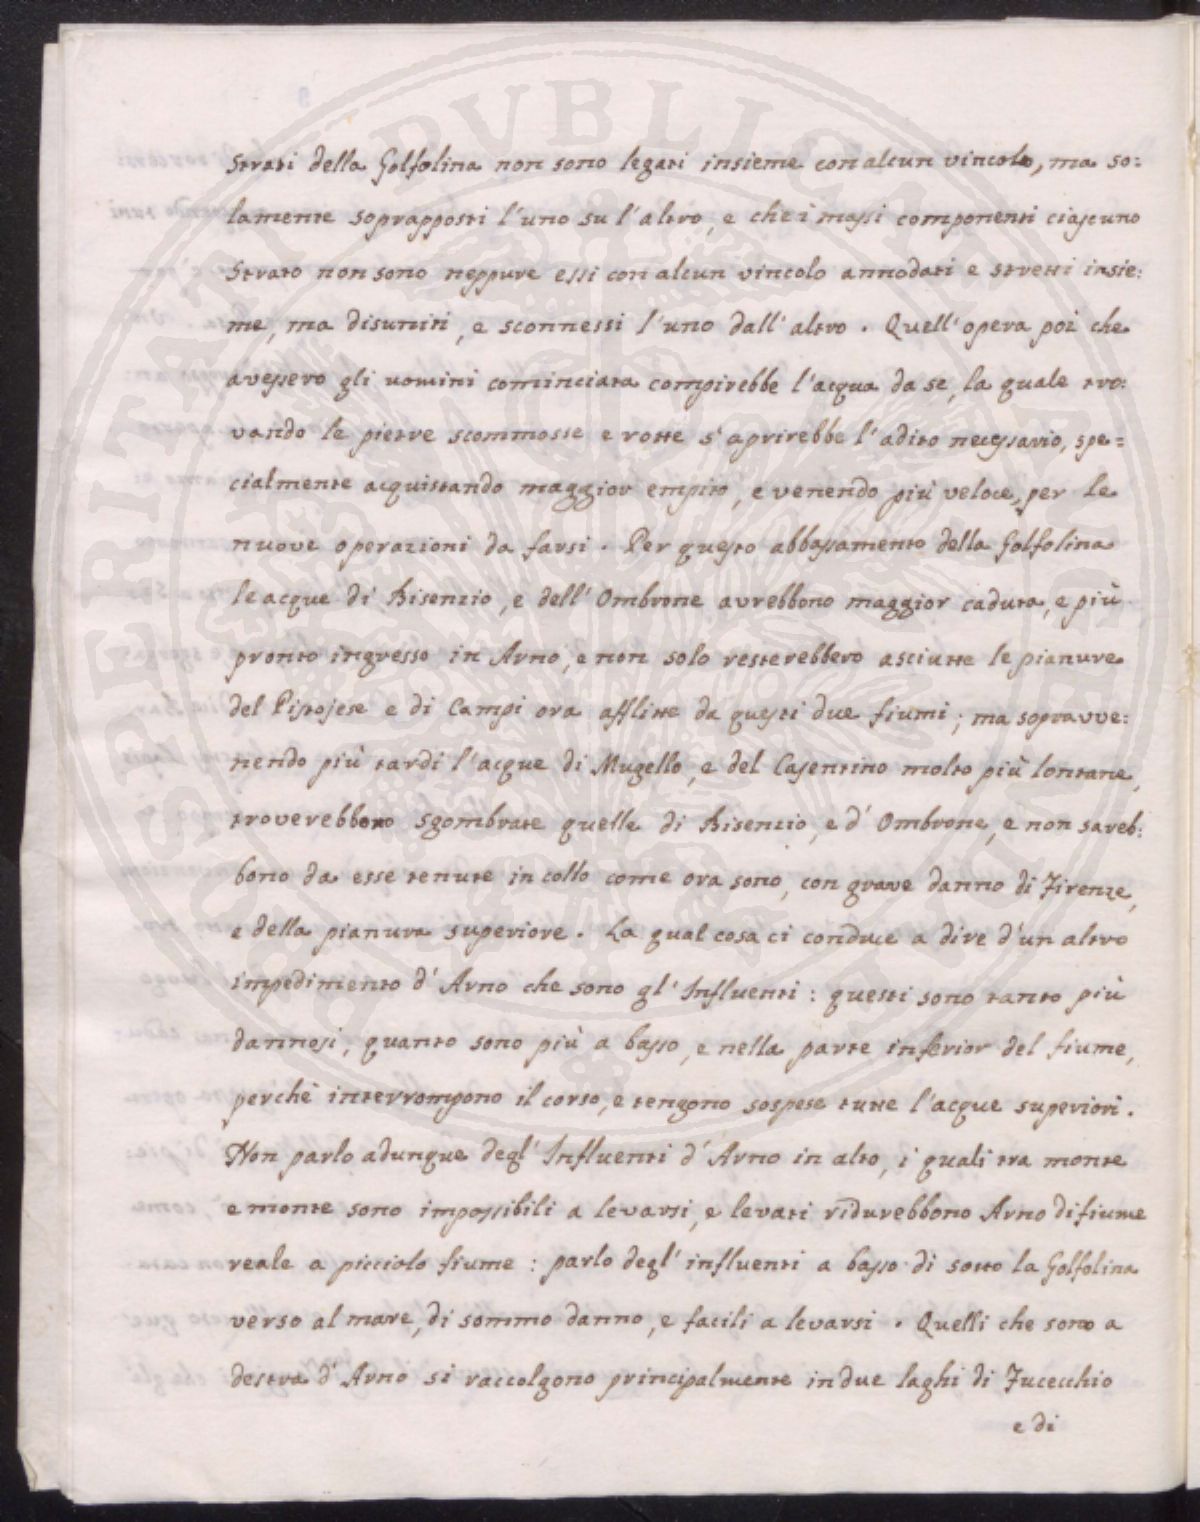 strati della Golfolina non sono legati insieme con alcun vincolo, ma so:
lamente soprapposti l'uno su l'altro, e che i massi componenti ciascuno
strato non sono neppure essi con alcun vincolo annodati e stretti insie:
me, ma disuniti, e sconnessi l'uno dall'altro. Quell'opera poi che
avessero gli uomini cominciata compirebbe l'acqua da se, la quale tro:
vando le pietre scommosse e rotte s'aprirebbe l'adito necessario, spe=
cialmente acquistando maggior empito, e venendo più veloce, per le
nuove operazioni da farsi. Per questo abbassamento della Golfolina
le acque di Bisenzio, e dell'Ombrone avrebbono maggior caduta, e più
pronto ingresso in Arno, e non solo resterebbero asciutte le pianure
del Pistojese e di Campi ora afflitte da questi due fiumi; ma sopravve:
nendo più tardi l'acque di Mugello, e del Casentino molto più lontane,
troverebbono sgombrate quelle di Bisenzio, e d'Ombrone, e non sareb:
bono da esse tenute in collo come ora sono, con grave danno di Firenze,
e della pianura superiore. La qual cosa ci conduce a dire d'un altro
impedimento d'Arno che sono gl'Influenti: questi sono tanto più
dannosi, quanto sono più a basso, e nella parte inferior del fiume,
perchè interrompono il corso, e tengono sospese tutte l'acque superiori.
Non parlo adunque degl'Influenti d'Arno in alto, i quali tra monte
e monte sono impossibili a levarsi, e levati ridurebbono Arno di fiume
reale a picciolo fiume: parlo degl'influenti a basso di sotto la Golfolina
verso al mare, di sommo danno, e facili a levarsi. Quelli che sono a
destra d'Arno si raccolgono principalmente in due laghi di Fucecchio
e di
PUBLICAE
PROSPERITATI